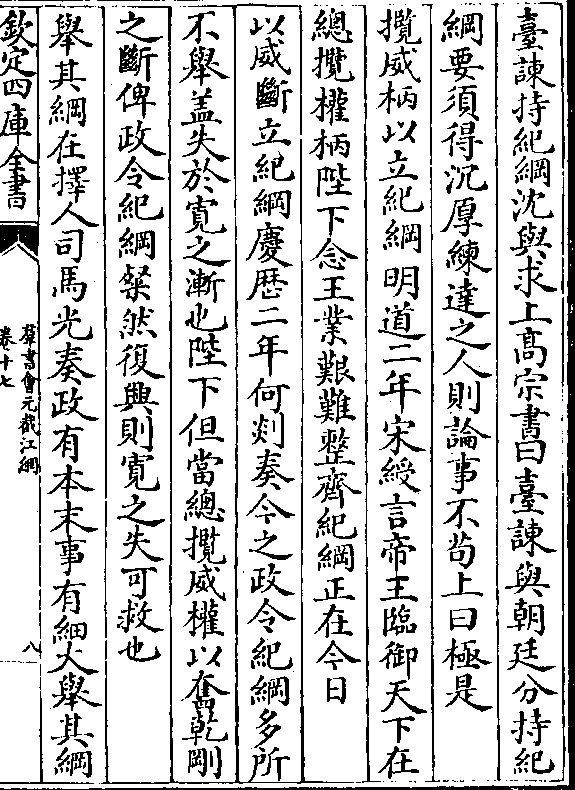 臺諫持紀綱沈與求上高宗書曰臺諫與朝廷分持紀
綱要須得沉厚練達之人則論事不茍上曰極是
攬威柄以立紀綱明道二年宋綬言帝王臨御天下在
總攬權柄陛下念王業艱難整齊紀綱正在今日
以威斷立紀綱慶歴二年何剡奏今之政令紀綱多所
不舉盖失於寛之漸也陛下但當總攬威權以奮乾剛
之斷俾政令紀綱粲然復興則寛之失可救也
舉其綱在擇人司馬光奏政有本末事有細大舉其綱
欽定四庫全書
羣書會元截江綱
卷十七
八